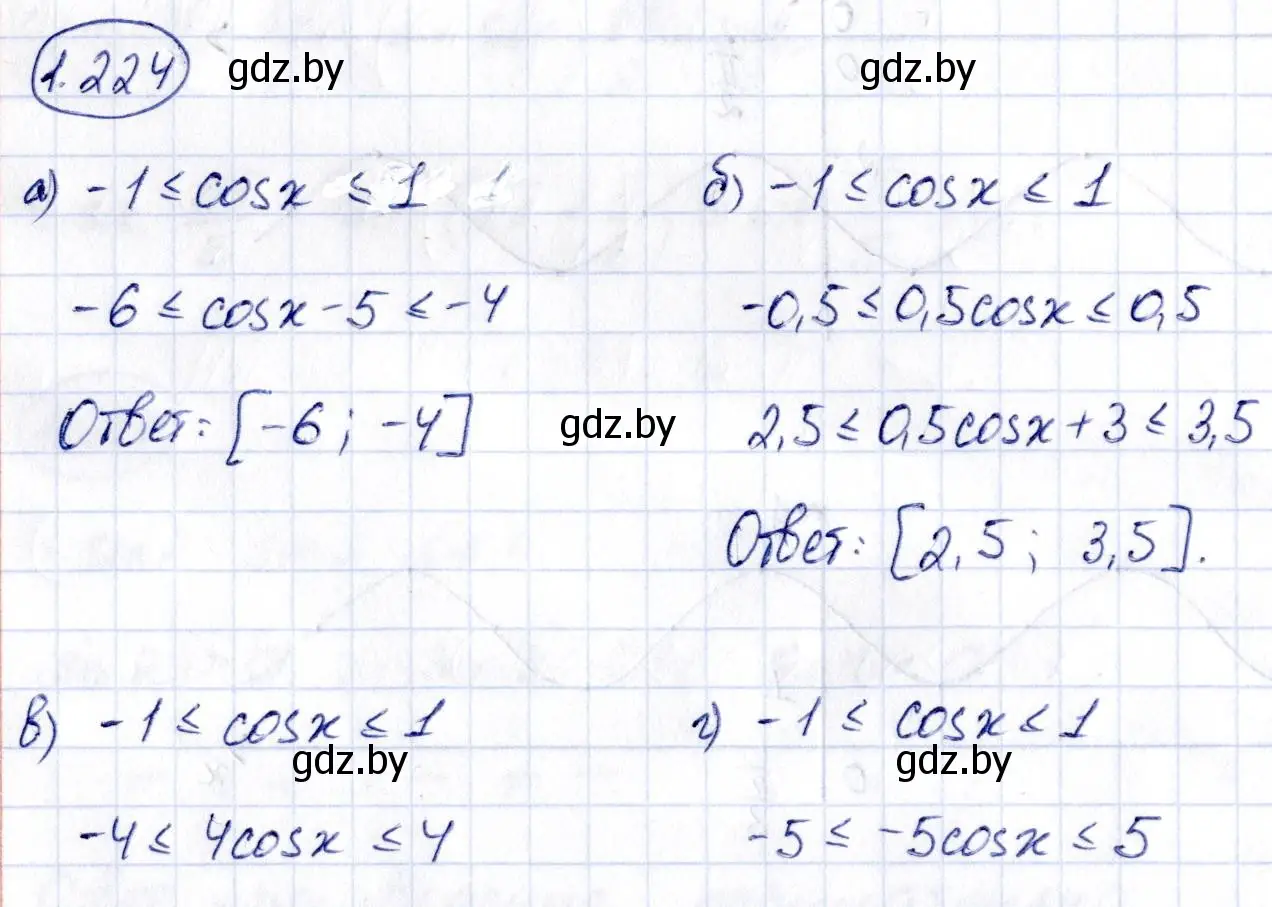 1.224 gdz.by gdz.by
а) -1 ≤ cosx ≤ 1
-6 ≤ cosx - 5 ≤ -4
Ответ: [-6; -4]
б) -1 ≤ cosx ≤ 1
-0,5 ≤ 0,5cosx ≤ 0,5
gdz.by
2,5 ≤ 0,5cosx + 3 ≤ 3,5
Ответ: [2,5; 3,5].
в) -1 ≤ cosx ≤ 1
gdz.by
-4 ≤ 4cosx ≤ 4
г) -1 ≤ cosx ≤ 1
gdz.by
-5 ≤ -5cosx ≤ 5